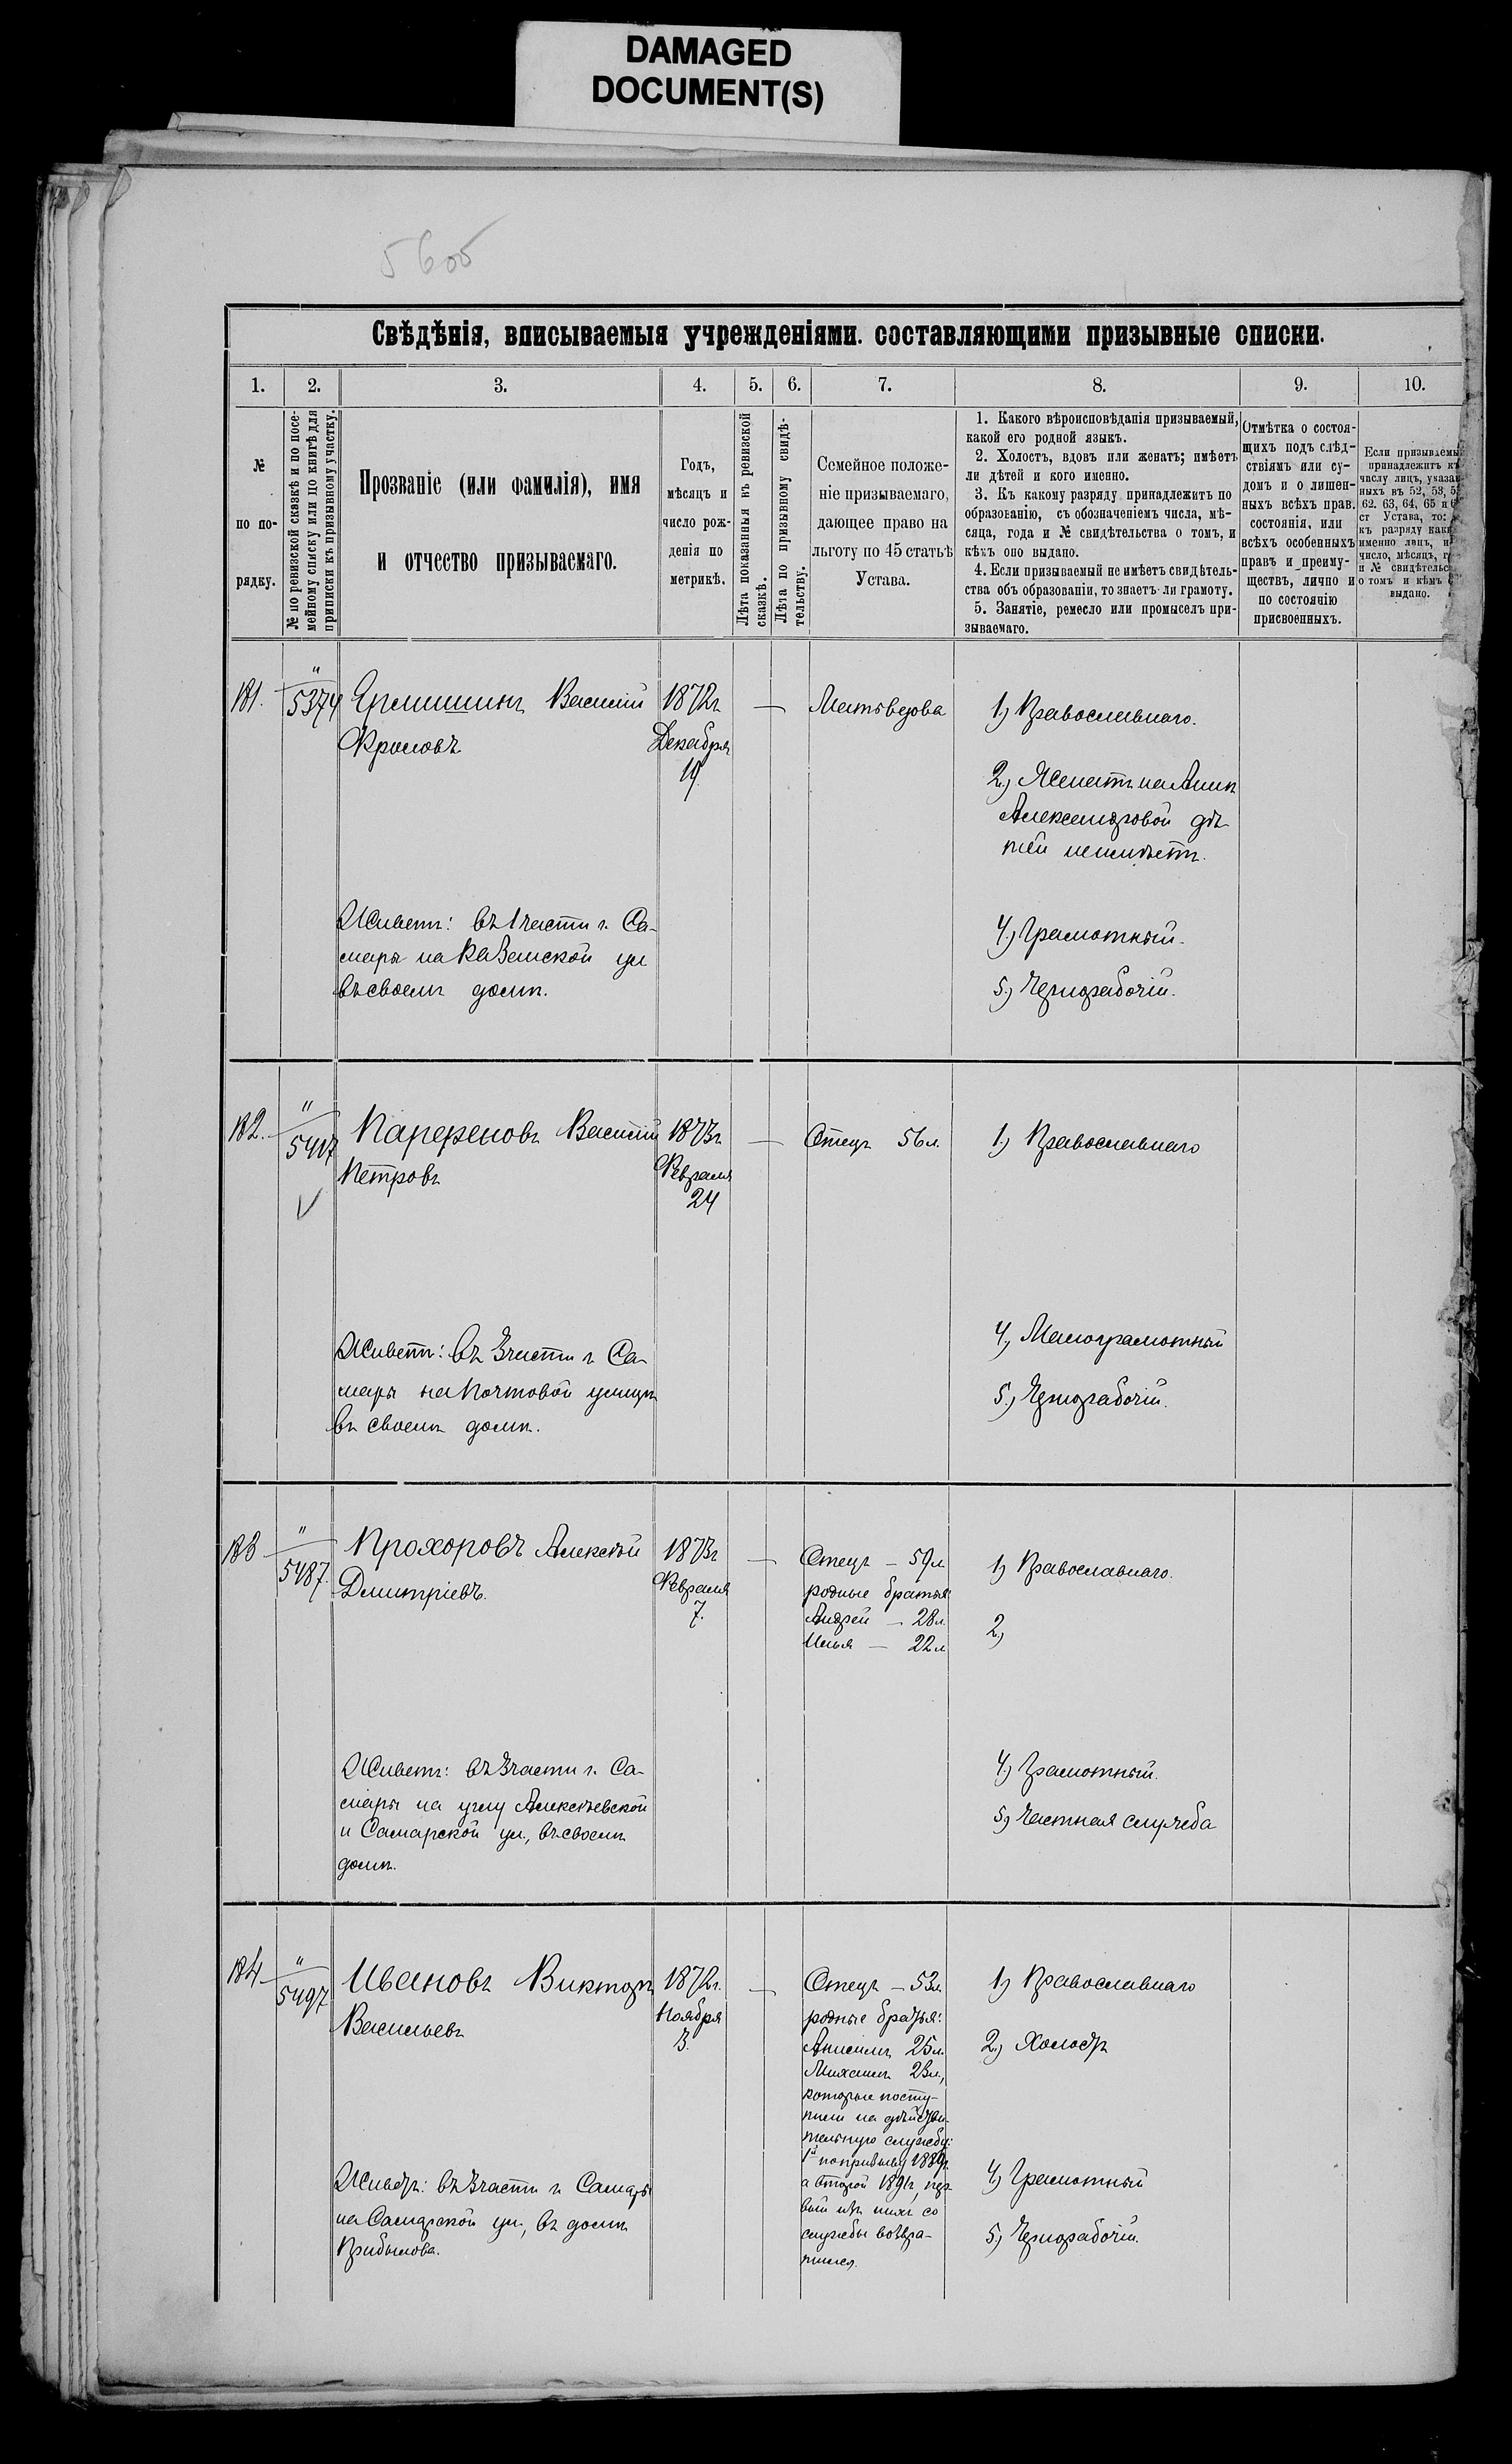 DAMAGED
DOCUMENT(S)
5605
Свѣдѣнія, вписываемыя учрежденіями, составляющими призывные списки.
1. 2. 3. 4. 5. 6. 7. 8. 9. 10.
№
по по-
рядку.
№ по ревизской сказкѣ и по посе-
мейному списку или по книгѣ для
приписки къ призывному участку.
Прозваніе (или фамилія), имя
и отчество призываемаго.
Годъ,
мѣсяцъ и
число рож-
денія по
метрикѣ.
Лѣта показанныя въ ревизской
сказкѣ.
Лѣта по призывному свидѣ-
тельству.
Семейное положе-
ніе призываемаго,
дающее право на
льготу по 45 статьѣ
Устава.
1. Какого вѣроисповѣданія призываемый,
какой его родной языкъ.
2. Холостъ, вдовъ или женатъ; имѣетъ
ли дѣтей и кого именно.
3. Къ какому разряду принадлежитъ по
образованію, съ обозначеніемъ числа, мѣ-
сяца, года и № свидѣтельства о томъ, и
кѣмъ оно выдано.
4. Если призываемый не имѣетъ свидѣтель-
ства объ образованіи, то знаетъ-ли грамоту.
5. Занятіе, ремесло или промыселъ при-
зываемаго.
Отмѣтка о состоя-
щихъ подъ слѣд-
ствіямъ или су-
домъ и о лишен-
ныхъ всѣхъ прав.
состоянія, или
всѣхъ особенныхъ
правъ и преиму-
ществъ, лично и
по состоянію
присвоенныхъ.
Если призываемый
принадлежитъ къ
числу лицъ, указан-
ныхъ въ 52, 53,
62, 63, 64, 65 и
ст Устава, то:
къ разряду как
именно лицъ, и
число, мѣсяцъ, г
и № свидѣтельс
о томъ и кѣмъ
выдано.
181.
" 5374
Василій
Фроловъ
1872г
Декабря
19.
—
1.) Православнаго.
2.) Женатъ на Аннѣ
Александровой дѣ-
тей неимѣетъ.
Живетъ: въ 1 части г. Са-
мары на Казанской ул
въ своемъ домѣ.
4.) Грамотный.
5.) Чернорабочій.
182.
" 5417
Парфеновъ Василій
Петровъ
1873г
Февраля
24
—
Отецъ 56 л.
1.) Православнаго
Живетъ: въ 3 части г Са-
мары на Почтовой улицѣ
въ своемъ домѣ.
4.) Малограмотный
5.) Чернорабочій.
183
" 5487.
Прохоровъ Алексѣй
Дмитріевъ.
1873г
Февраля
7.
—
Отецъ — 59 л
родные братья:
Андрей — 28 л.
Илья — 22 л
1) Православнаго.
2.)
Живетъ: въ 3 части г. Са-
мары на углу Алексѣевской
и Самарской ул., въ своемъ
домѣ.
4.) Грамотный.
5.) Частная служба
184
" 5497
Ивановъ Викторъ
Васильевъ
1872г.
Ноября
3.
—
Отецъ — 53 л.
родные братья:
Анисимъ 25 л.
Михаилъ 23 л,
которые посту-
пили на дѣйстви-
тельную службу:
1й попризыву 1889г.
а второй 1891г, пер-
вый изъ нихъ со
службы возвра-
тился.
1) Православнаго
2.) Холостъ
Живетъ: въ 3 части г. Самары
на Самарской ул, въ домѣ
Прибылова.
4.) Грамотный
5.) Чернорабочій.